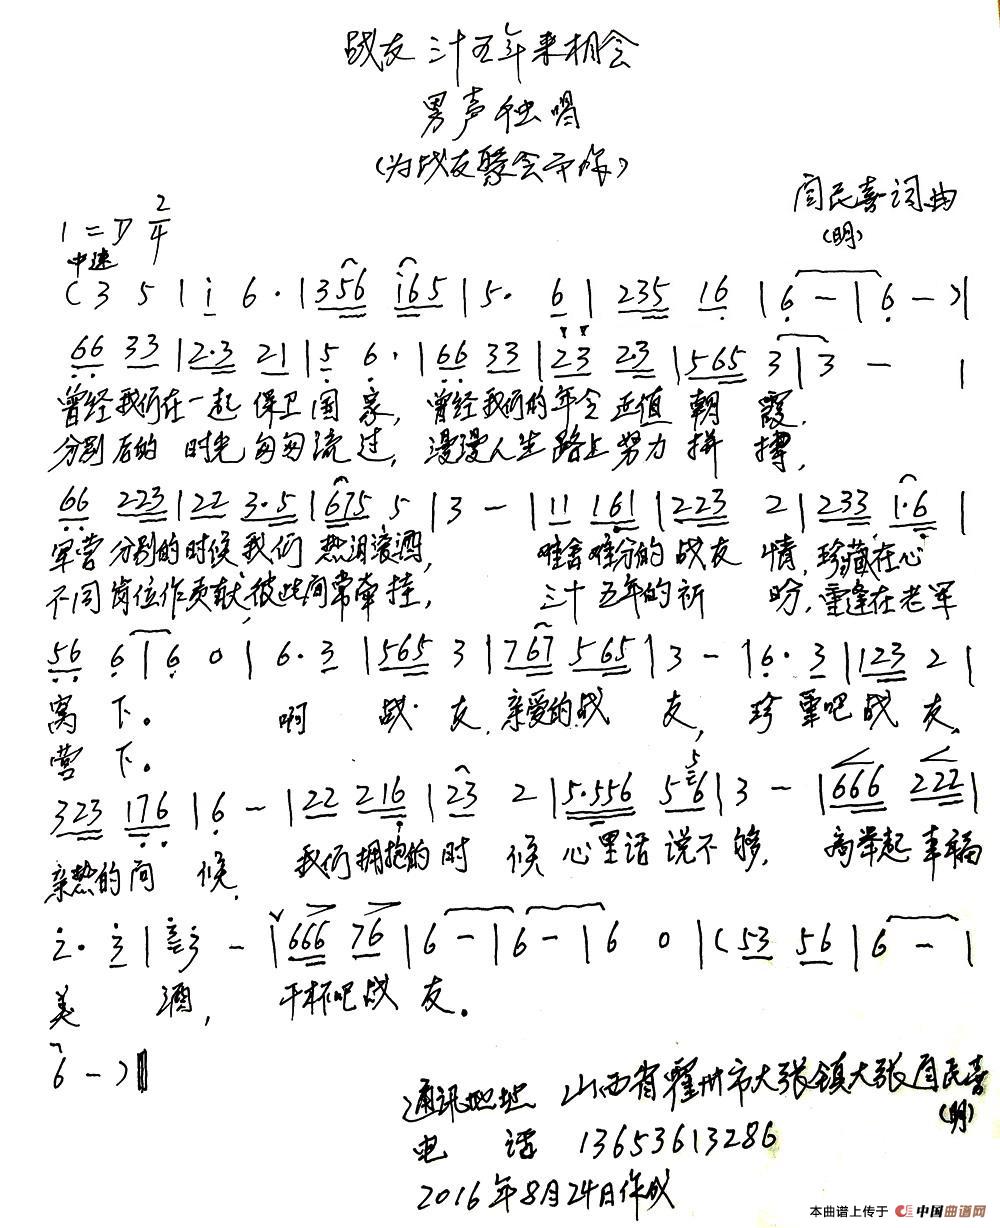 战友三十五年来相会
男声独唱
(为战友聚会而作)
闫民喜词曲
(明)
1=D 2/4
中速
(3 5 | i 6· | 356 i65 | 5· 6 | 235 16 | 6 - | 6 - )|
66 33 | 2·3 21 | 5 6· | 66 33 | 23 2·3 | 565 3 | 3 - |
曾经我们在一起保卫国家,曾经我们的年令正值朝霞.
分别后的时光匆匆流过,漫漫人生路上努力拼搏,
66 223 | 22 3·5 | 675 5 | 3 - | 11 161 | 223 2 | 233 1·6 |
军营分别的时候我们热泪滚洒,难舍难分的战友情,珍藏在心
不同岗位作贡献,彼此间常牵挂,三十五年的祈盼,重逢在老军
56 6 | 6 0 | 6·3 | 565 3 | 767 565 | 3 - | 6·3 | 123 2 |
窝下。啊战友,亲爱的战友,珍重吧战友,
营下。
323 176 | 6 - | 22 216 | 23 2 | 5·556 5 56 | 3 - | 666 222 |
亲热的问候,我们拥抱的时候心里话说不够,高举起幸福
2·3 | 3 - | 666 76 | 6 - | 6 - | 6 0 | (53 56 | 6 - |
美酒,干杯吧战友。
6 - )‖
通讯地址 山西省霍州市大张镇大张闫民喜
(明)
电话 13653613286
2016年8月24日作成
本曲谱上传于 中国曲谱网